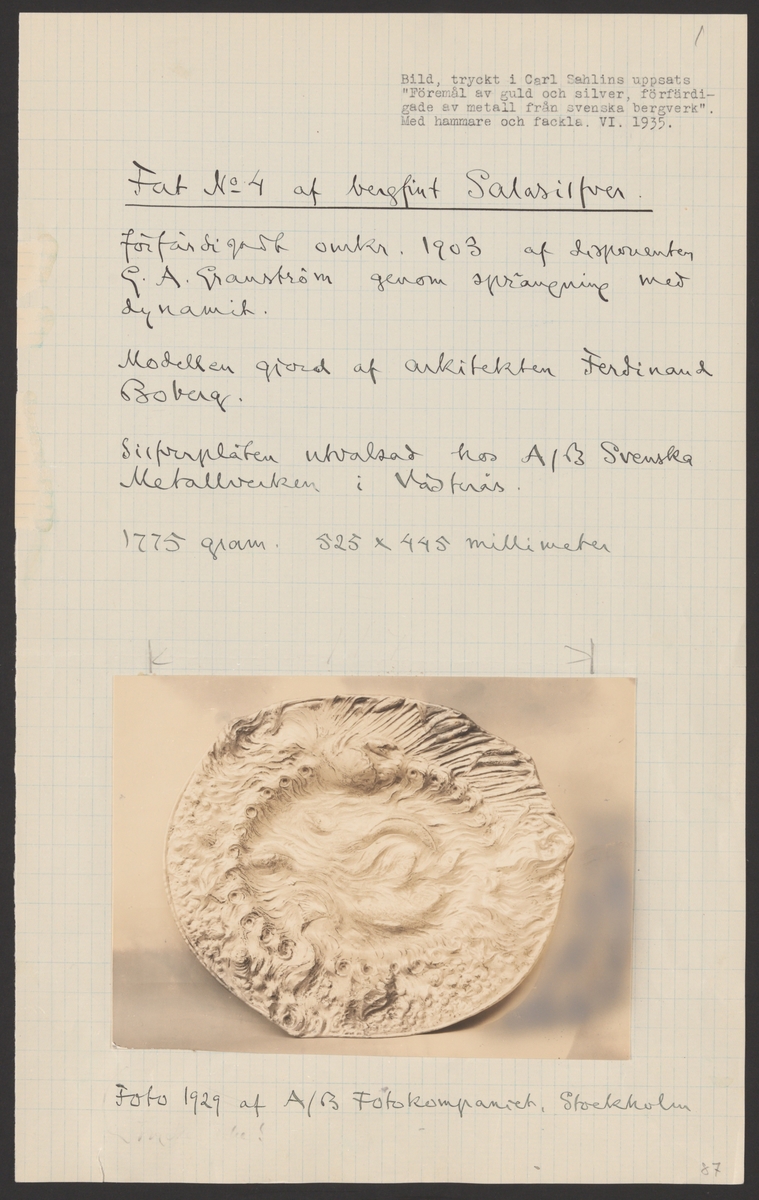 1
Bild, tryckt i Carl Sahlins uppsats
"Föremål av guld och silver, förfärdi-
gade av metall från svenska bergverk".
Med hammare och fackla. VI. 1935.
Fat No 4 af bergfint Salasilfver.
Förfärdigadt omkr. 1903 af disponenten
G. A. Granström genom sprängning med
dynamit.
Modellen gjord af arkitekten Ferdinand
Boberg.
Silfverplåten utvalsad hos A/B Svenska
Metallverken i Västerås.
1775 gram. 525 x 445 millimeter
Foto 1929 af A/B Fotokompaniet, Stockholm
87